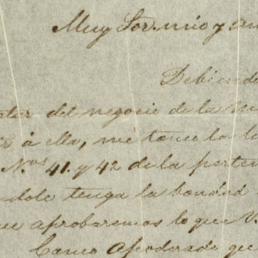 Muy Sor. mio y am
Debiend
del negocio de la
á ella, me tomo la li
Nos. 41. y 42 de la perten
dole tenga la bondad
aprobaremos lo que V.
Como Apoderado que